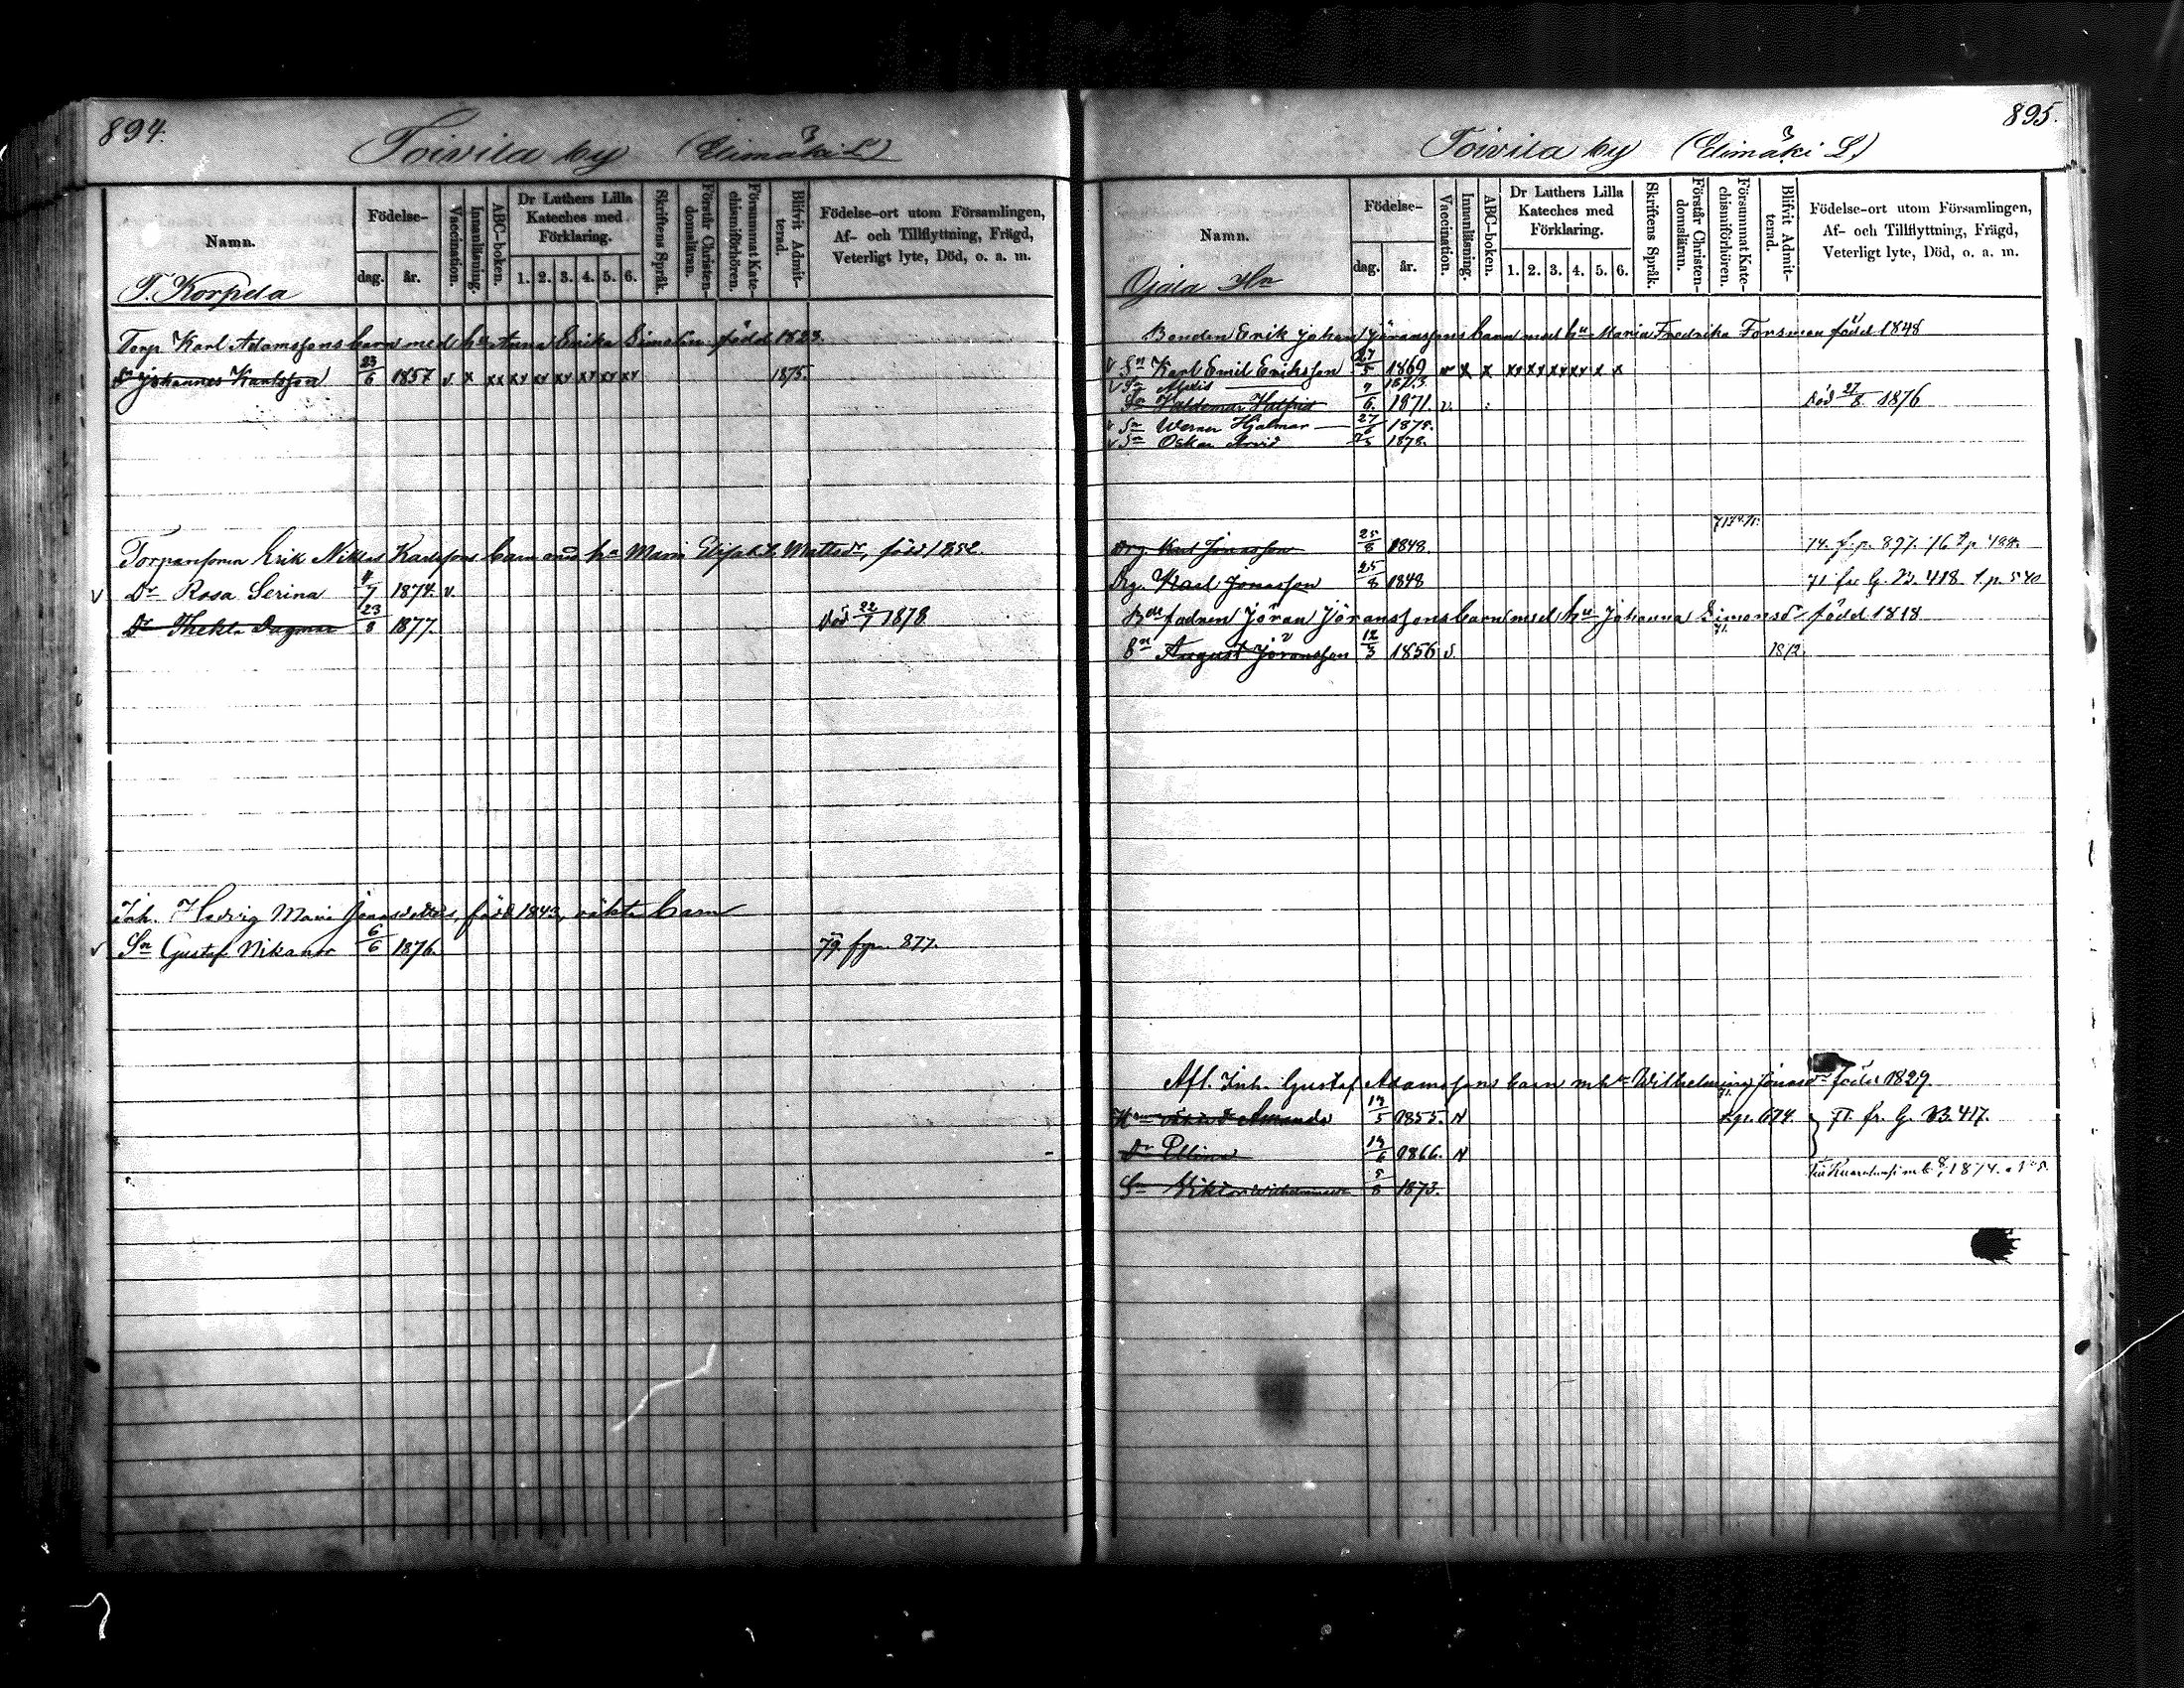 894.
Toivila by (Elimäki L)
Namn.
Födelse-
dag. år.
Vaccination.
Innanläsning.
ABC-boken.
Dr Luthers Lilla Kateches med Förklaring.
1. 2. 3. 4. 5. 6.
Skriftens Språk.
Förstår Christen-domsläran.
Försummat Kate-chismiförhören.
Blifvit Admit-terad.
Födelse-ort utom Församlingen,
Af- och Tillflyttning, Frägd,
Veterligt lyte, Död, o. a. m.
T. Korpela
Torp. Karl Adamssons barn med hu Anna Erika född 1823.
Sn Johannes Karlsson 23/6 1857 v x xx xx xx xx xx xx xx 1875.
Torparsonen Erik Niklas Karlssons barn med hu Maria Elisabet Mattsdr, född 1852.
v Dr Rosa Serina 4/7 1874. v.
Dr Thekla Dagmar 23/8 1877. död 22/7 1878
Inh. Hedvig Maria Jonasdotters, född 1843, oäkta barn
v Sn Gustaf Nikanor 6/6 1876. 79. fp. 877.
895.
Toivila by (Elimäki L.)
Namn.
Födelse-
dag. år.
Vaccination.
Innanläsning.
ABC-boken.
Dr Luthers Lilla Kateches med Förklaring.
1. 2. 3. 4. 5. 6.
Skriftens Språk.
Förstår Christen-domsläran.
Försummat Kate-chismiförhören.
Blifvit Admit-terad.
Födelse-ort utom Församlingen,
Af- och Tillflyttning, Frägd,
Veterligt lyte, Död, o. a. m.
Ojala Hn
Bonden Erik Johan Jöranssons barn med hu Maria Fredrika Forsman född 1848
v Sn Karl Emil Eriksson 27/5 1869 v x x xx xx xx xx x x
v Sn
Sn Valdemar 6. 1871. v. död 27/8 1876
v Sn Werner Hjalmar 27/6 1875.
v Sn Oskar Arvid 1878.
Drg. Karl Jonasson 25/8 1848. 74. f. p. 897. 76 t p 484.
Drg. Karl Jonasson 25/8 1848 71 fr G. B. 418 t. p. 540
Bdefadren Jöran Jöranssons barn med hu Johanna Simonsdr född 1818
Sn August Jöransson 12/3 1856 v. 1872
Afl. Inh. Gustaf Adamssons barn m hu Wilhelmina Jonasdr född 1829
Amanda 1855. N t.p. 674. 71. fr. G. B. 417.
Dr Ellina 1866. N
Sn Viktor Wilhelmsson 5/8 1873. 1874.